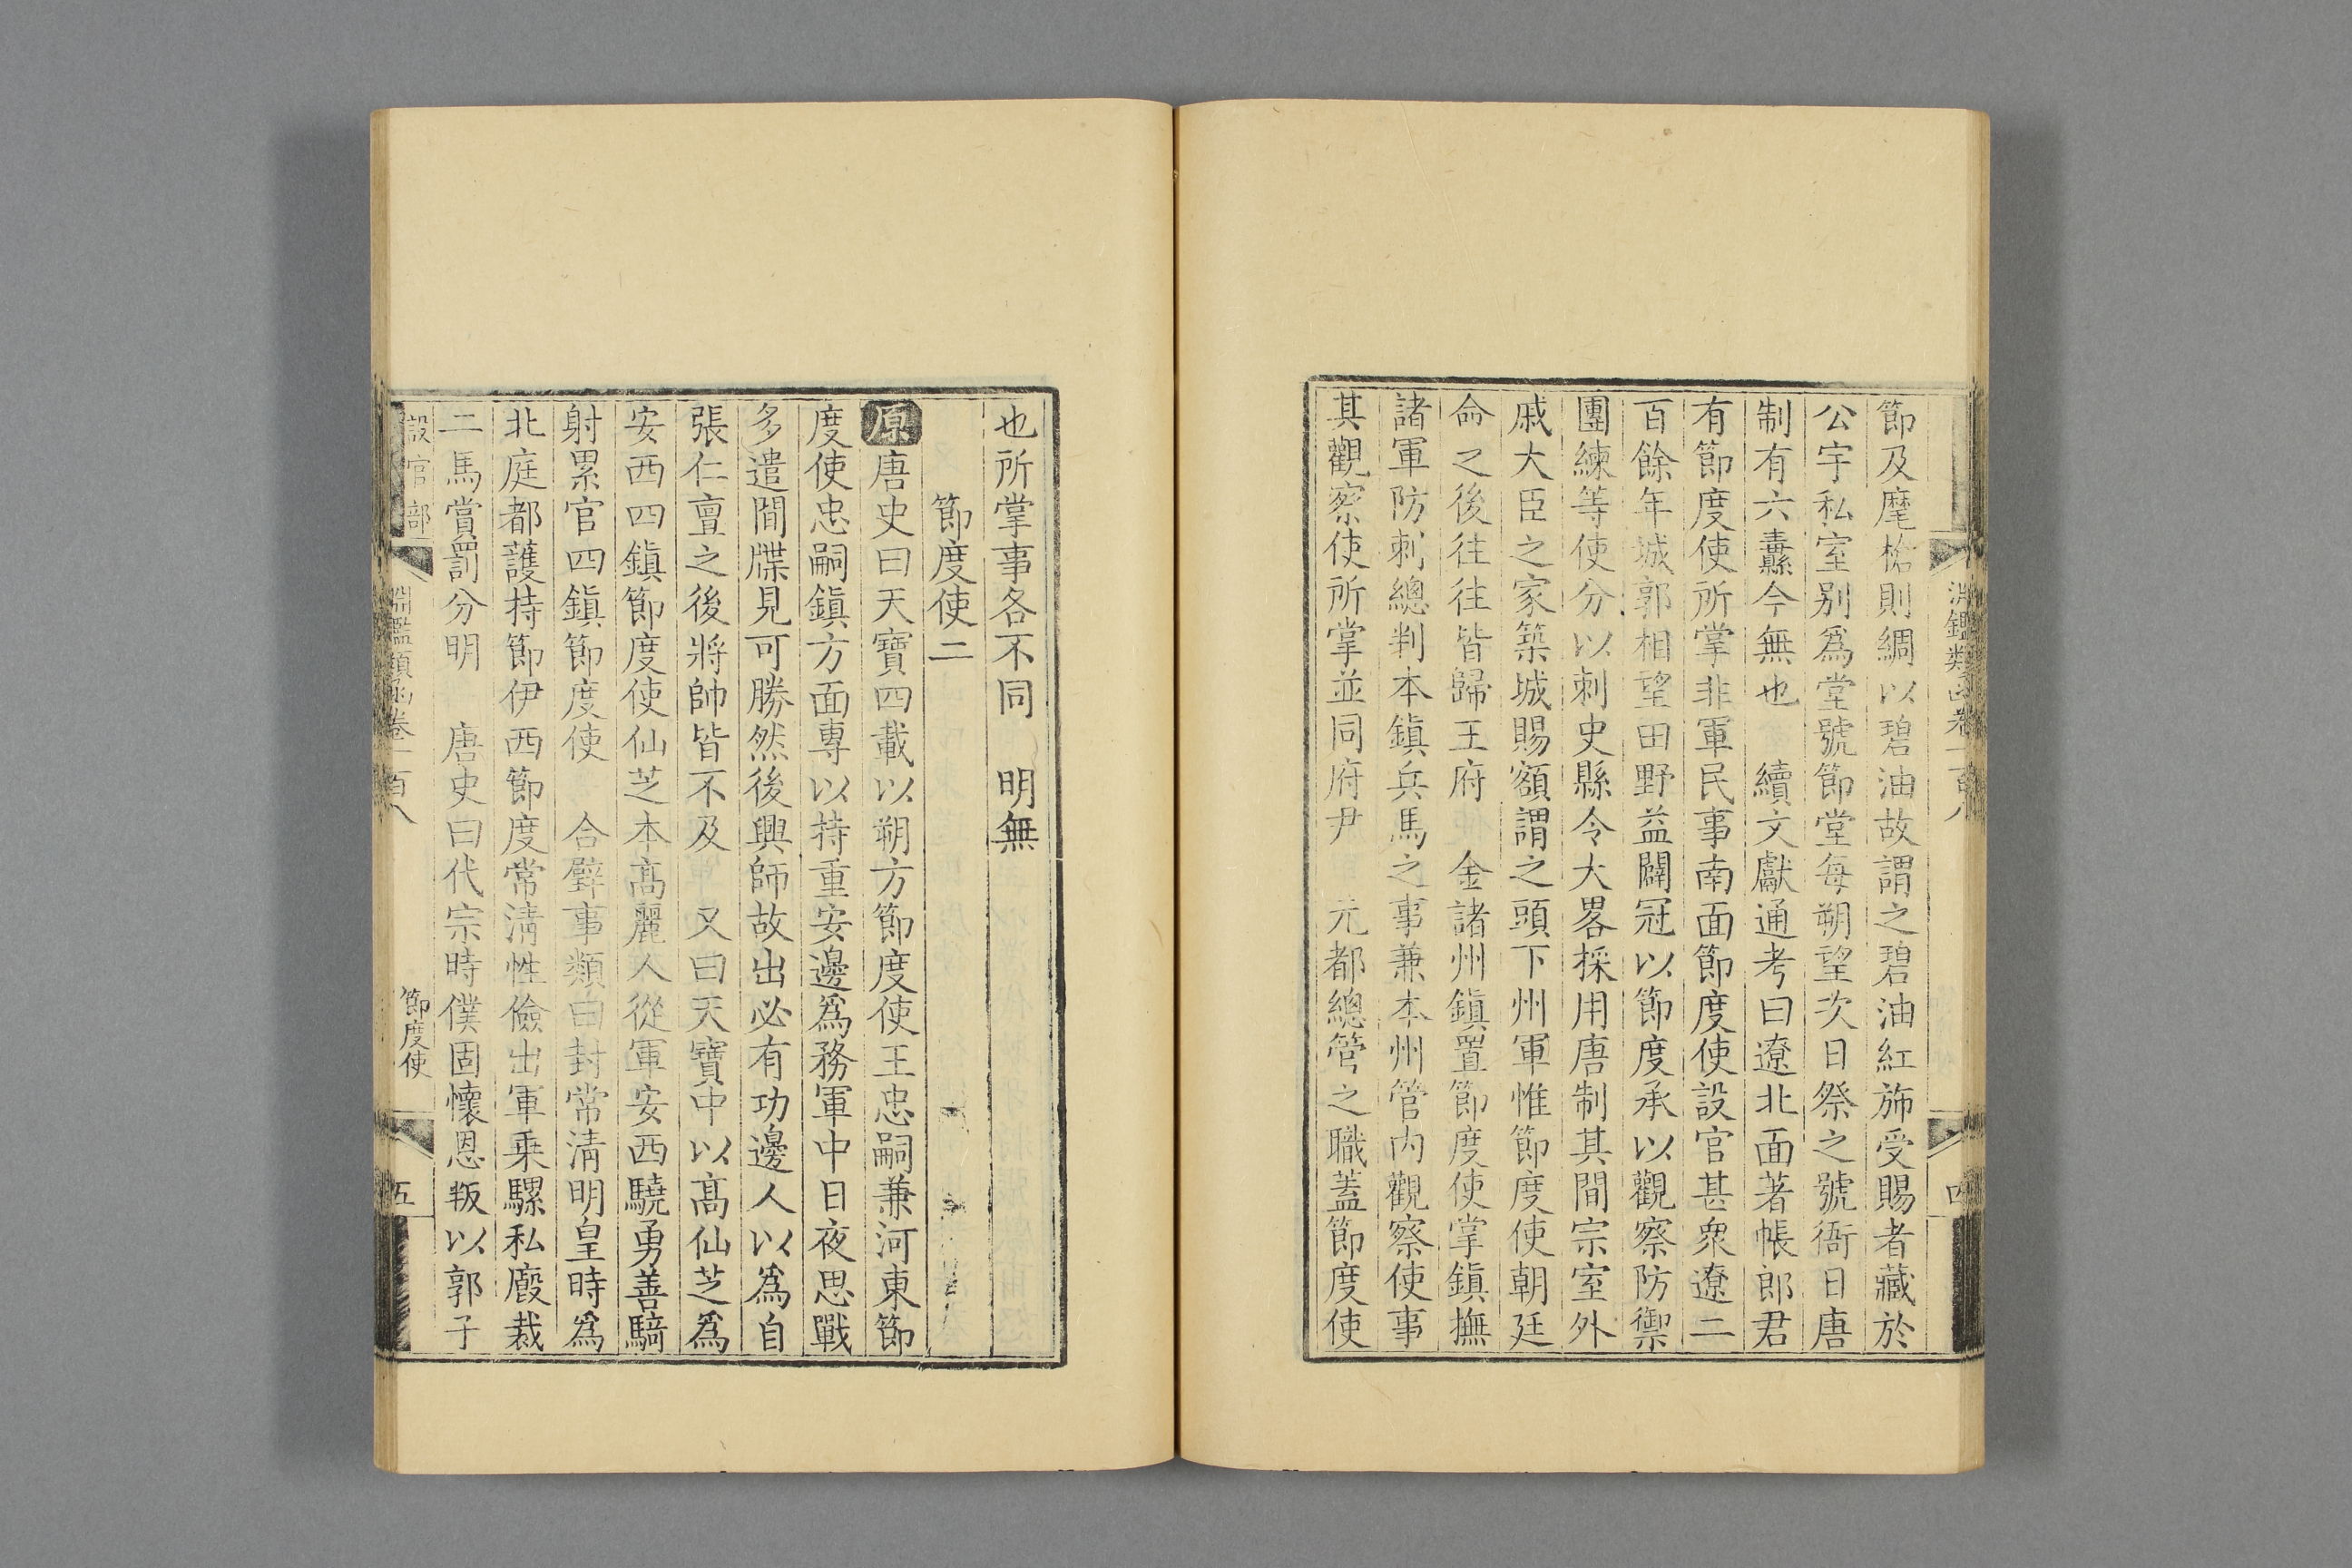 淵鑑類函卷一百八
四
節及麾槍則綢以碧油故謂之碧油紅斾受賜者藏於
公宇私室别爲堂號節堂每朔望次日祭之號衙日唐
制有六纛今無也　續文獻通考曰遼北面著帳郎君
有節度使所掌非軍民事南面節度使設官甚衆遼二
百餘年城郭相望田野益闢冠以節度承以觀察防禦
團練等使分以刺史縣令大畧採用唐制其間宗室外
戚大臣之家築城賜額謂之頭下州軍惟節度使朝廷
命之後往往皆歸王府　金諸州鎮置節度使掌鎮撫
諸軍防刺總判本鎮兵馬之事兼本州管内觀察使事
其觀察使所掌並同府尹　元都總管之職蓋節度使
也所掌事各不同　明無
節度使二
原唐史曰天寶四載以朔方節度使王忠嗣兼河東節
度使忠嗣鎮方面專以持重安邊爲務軍中日夜思戰
多遣間牒見可勝然後興師故出必有功邊人以爲自
張仁亶之後將帥皆不及　又曰天寶中以髙仙芝爲
安西四鎮節度使仙芝本髙麗人從軍安西驍勇善騎
射累官四鎮節度使　合璧事類曰封常淸明皇時爲
北庭都護持節伊西節度常淸性儉出軍乗騾私廏裁
二馬賞罰分明　唐史曰代宗時僕固懷恩叛以郭子
設官部
淵鑑類函卷一百八
節度使
五